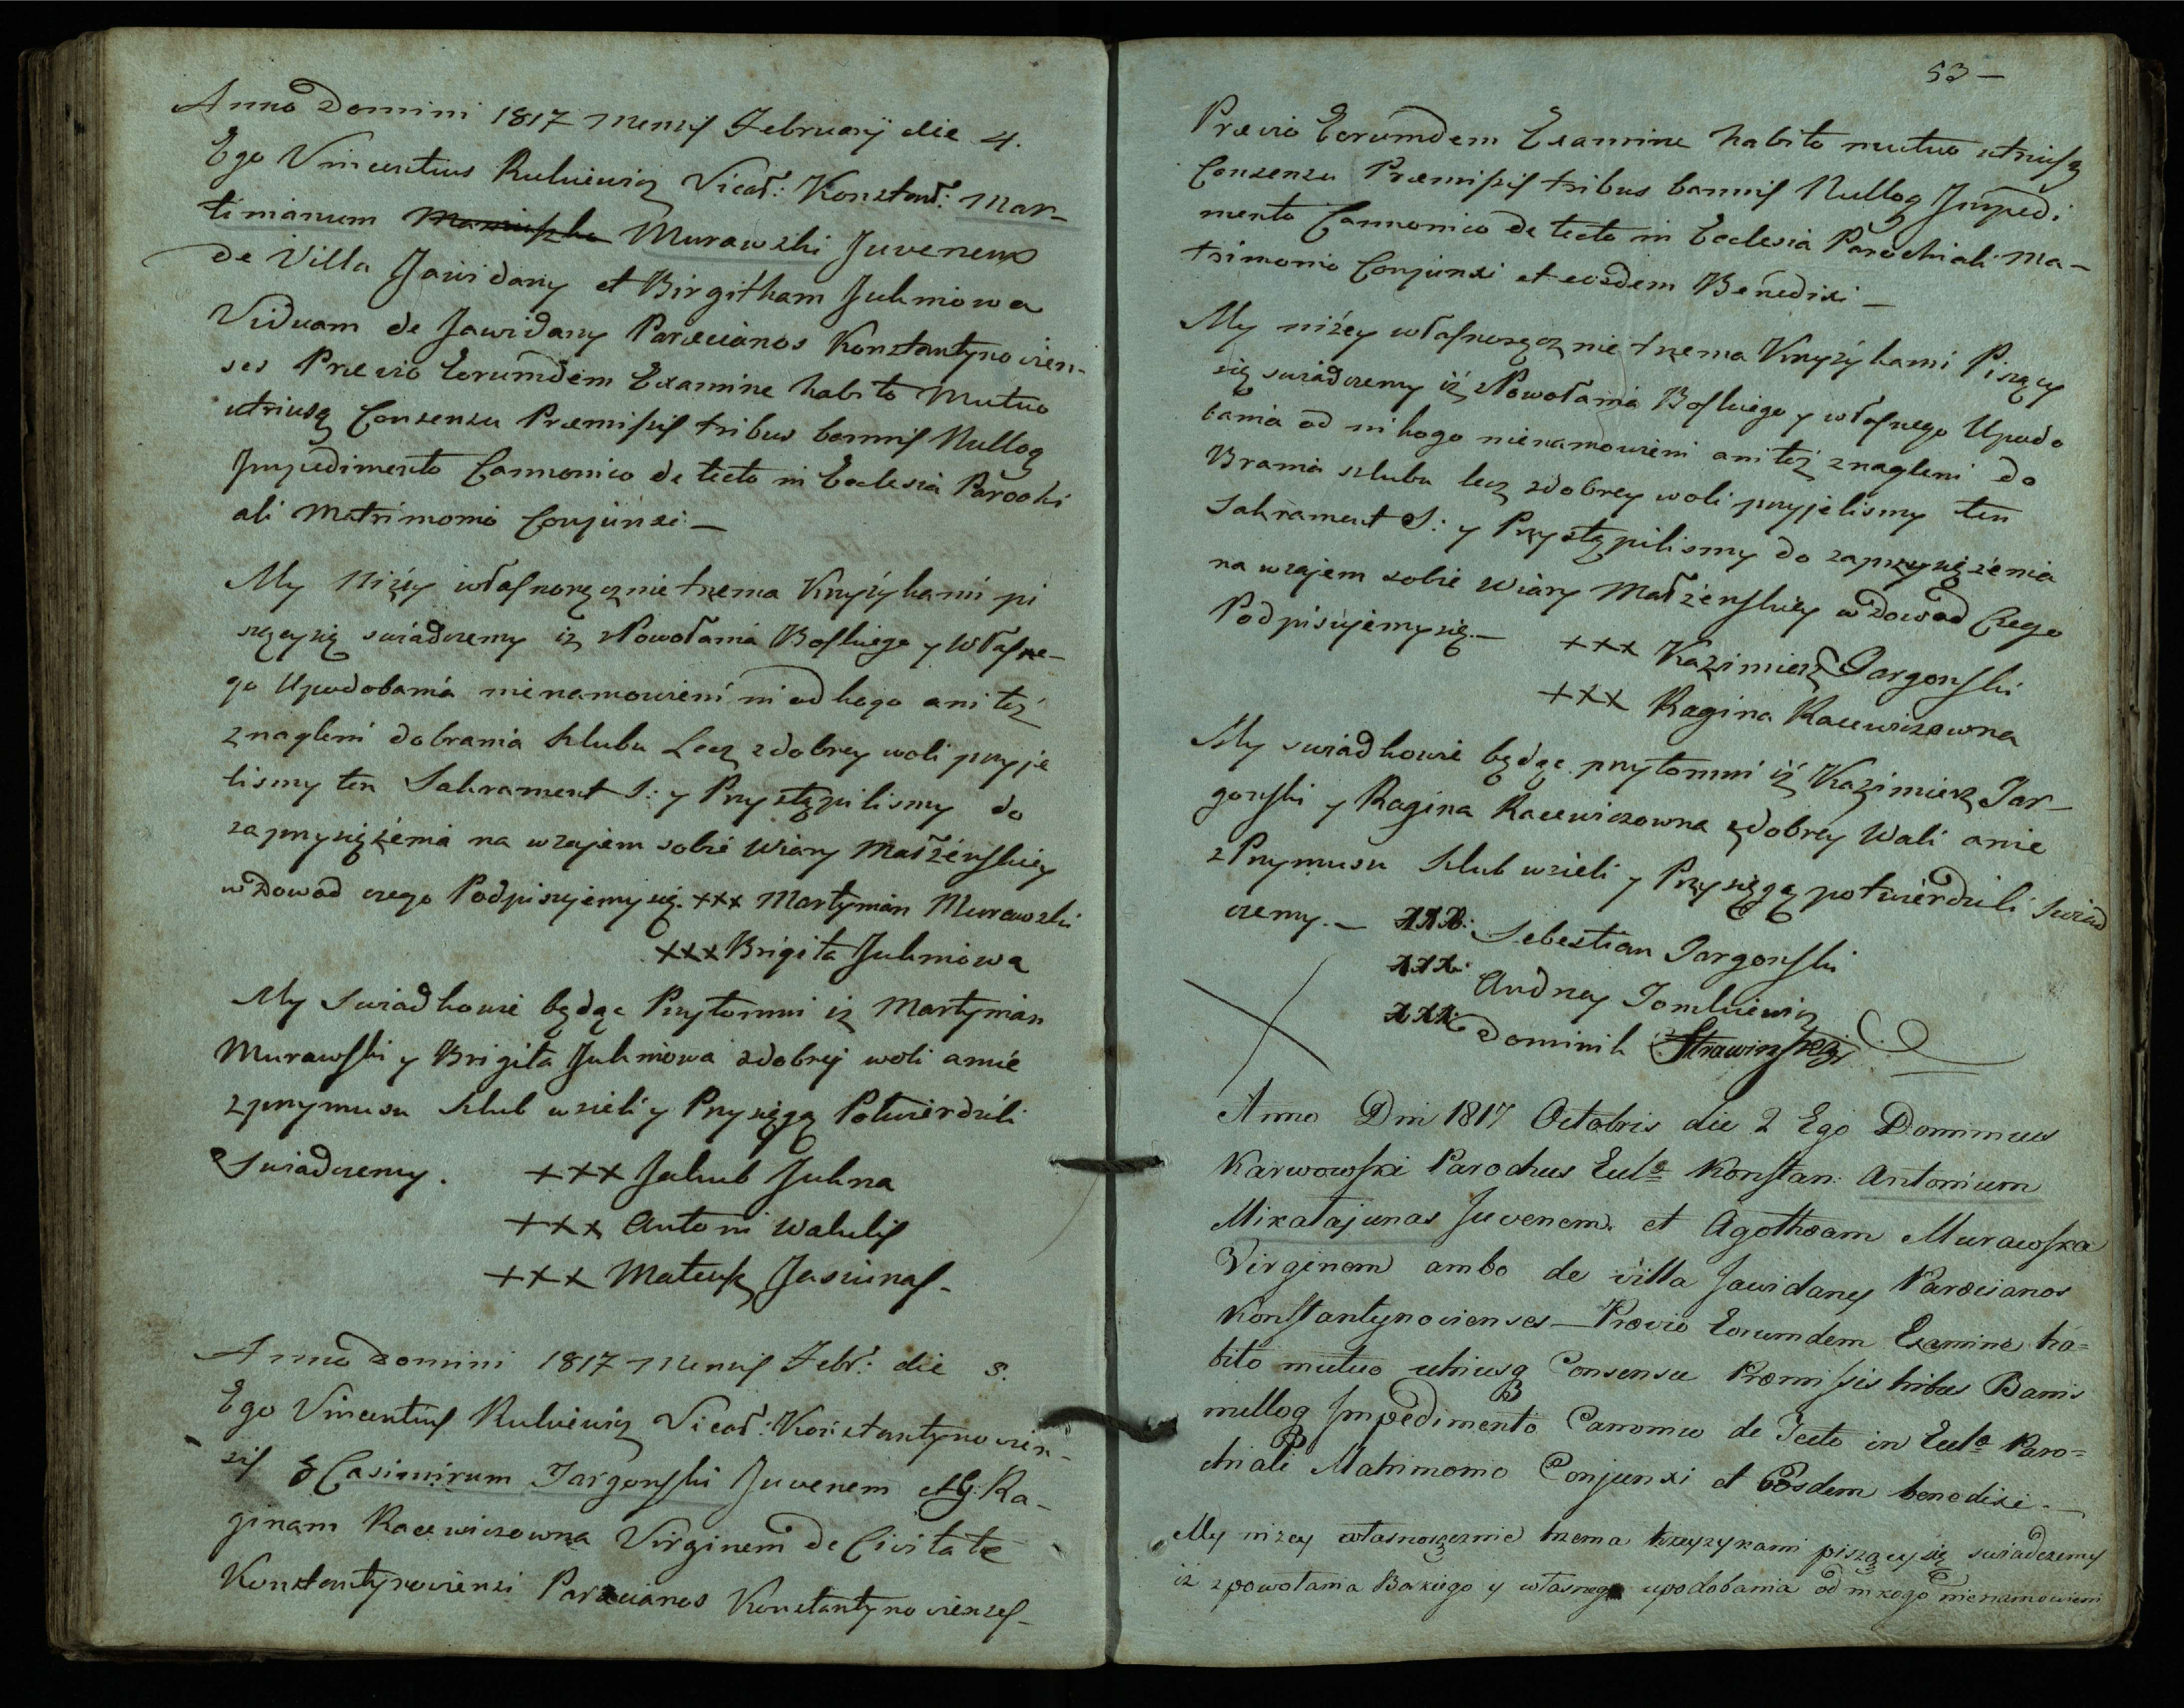 Anno Domini 1817 Mensis February die 4.
Ego Vincentius Rulniewicz Vicar: Konstant: Mar-
timianum Murawski Juvenem
de Villa Jawidany et Birgitham Juhniowa
Viduam de Jawidany Paræcianos Konstantynovien-
ses Prævio Eorumdem Examine habito Mutuo
utriusq Consensu Præmissis tribus bannis Nulloq
Impedimento Cannonico de tecto in Ecclesia Parochi
ali Matrimonio Conjunxi —
My Niżéy własnoręcznie trzema Krzyżykami pi
szący się swiadczemy iz z Powołania Boskiego y Własne-
go Upodobania nienamowieni ni od kogo ani też
znagleni do brania szlubu Lecz z dobrey woli przyje
lismy ten Sakrament S: y Przystąpilismy do
zaprzysiężenia na wzajem sobie Wiary Małżeńskiey
w Dowod czego Podpisujemy się. +++ Martymian Murawski
+++ Brigita Juhniowa
My Swiadkowie będąc Przytomni iz Martymian
Murawski y Brigita Juhniowa z dobrej woli a nie
z przymusu szlub wzieli y Przysięgą Potwierdzili
Swiadczemy. +++ Jakub Juhna
+++ Antoni Walulis
+++ Mateusz Jasiunas -
Anno Domini 1817 Mensis Febr: die 8.
Ego Vincentius Rulniewicz Vicar: Konstantynovien-
sis G Casimirum Jargonski Juvenem et G: Ra-
ginam Racewiczowna Virginem de Civitate
Konstantynoviensi Paræcianos Konstantynovienses -
53 —
Prævio Eorumdem Examine habito mutuo utriusq
Consensu Præmissis tribus bannis Nulloq Impedi
mento Cannonico de tecto in Ecclesia Parochiali Ma-
trimonio Conjunxi et eosdem Benedixi —
My niżey własnoręcznie trzema Krzyżykami Piszący
się swiadczemy iż z Powołania Boskiego y własnego Upodo
bania od nikogo nienamowieni ani też znagleni do
Brania szlubu lecz z dobrey woli przyjelismy ten
Sakrament S: y Przystąpilismy do zaprzysiężenia
na wzajem sobie Wiary Małżenskiey w Dowod Czego
Podpisujemy się. — +++ Kazimierz Jargonski
+++ Ragina Racewiczowna
My swiadkowie będąc przytomni iż Kazimierz Jar-
gonski y Ragina Racewiczowna z dobrey Wali a nie
z Przymusu szlub wzieli y Przysięgą potwierdzili Swiad
czemy. — XXX: Sebestian Jargonski
XXX: Andrzey Tomkiewicz
XXX: Dominik Strawinski
Anno Dni 1817 Octobris die 2 Ego Dominicus
Karwowski Parochus Eulæ Konstan: Antonium
Mikałajunas Juvenem et Agotham Murawska
Virginem ambo de villa Jawidany Paroecianos
Konstantynovienses — Prævio Eorumdem Examine ha=
bito mutuo utriusq Consensu Præmissis tribus Banis
nulloq Impedimento Canonico de Tecto in Eccla Paro=
chiali Matrimonio Conjunxi et Eosdem benedixi —
My niżey własnoręcznie trzema krzyzykami piszący się swiadczemy
iz z powołania Boskiego y własnego upodobania od nikogo nienamowieni